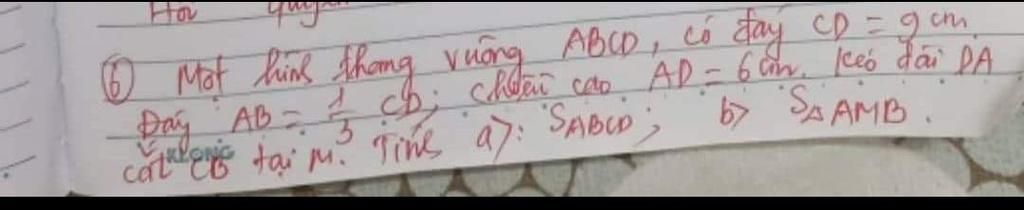 ⑥ Một hình thang vuông ABCD, có đáy CD = 9 cm
Đáy AB = 1/3 CD; chiều cao AD = 6 cm. Kéo dài DA
cắt CB tại M. Tính a): SABCD; b> S△AMB.